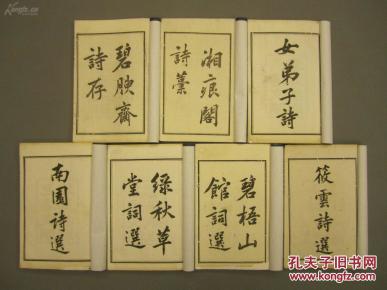 女弟子詩
湘痕閣
詩藁
碧腴齋
詩存
筱雲詩選
碧梧山
館詞選
綠秋草
堂詞選
南園詩選
孔夫子旧书网